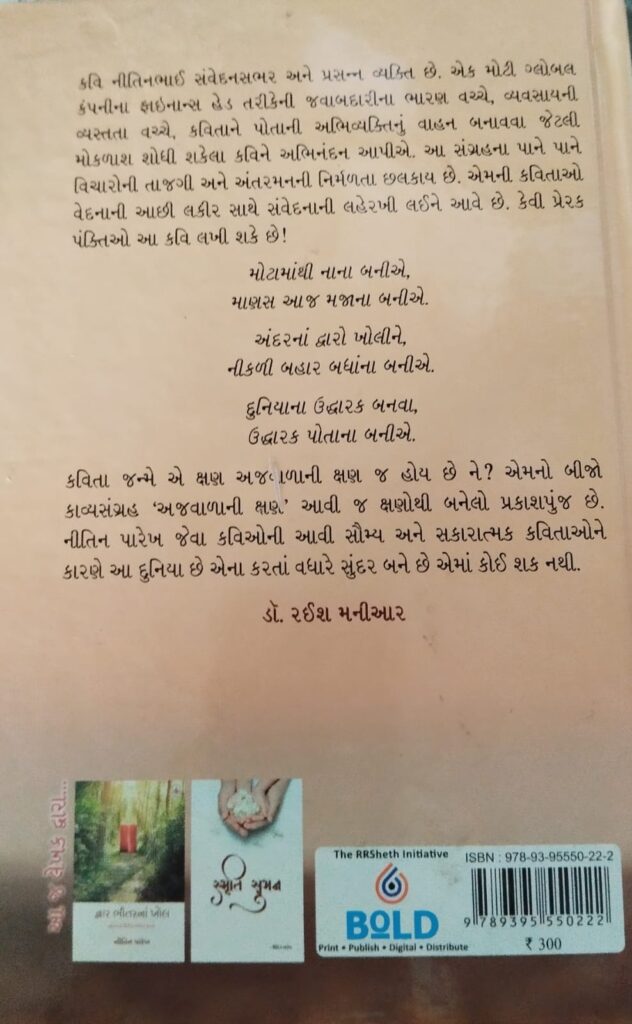 કવિ નીતિનભાઈ સંવેદનસભર અને પ્રસન્ન વ્યક્તિ છે. એક મોટી ગ્લોબલ
કંપનીના ફાઇનાન્સ હેડ તરીકેની જવાબદારીના ભારણ વચ્ચે, વ્યવસાયની
વ્યસ્તતા વચ્ચે, કવિતાને પોતાની અભિવ્યક્તિનું વાહન બનાવવા જેટલી
મોકળાશ શોધી શકેલા કવિને અભિનંદન આપીએ. આ સંગ્રહના પાને પાને
વિચારોની તાજગી અને અંતરમનની નિર્મળતા છલકાય છે. એમની કવિતાઓ
વેદનાની આછી લકીર સાથે સંવેદનાની લહેરખી લઈને આવે છે. કેવી પ્રેરક
પંક્તિઓ આ કવિ લખી શકે છે!
મોટામાંથી નાના બનીએ,
માણસ આજ મજાના બનીએ.
અંદરનાં દ્વારો ખોલીને,
નીકળી બહાર બધાંના બનીએ.
દુનિયાના ઉદ્ધારક બનવા,
ઉદ્ધારક પોતાના બનીએ.
કવિતા જન્મે એ ક્ષણ અજવાળાની ક્ષણ જ હોય છે ને? એમનો બીજો
કાવ્યસંગ્રહ ‘અજવાળાની ક્ષણ’ આવી જ ક્ષણોથી બનેલો પ્રકાશપુંજ છે.
નીતિન પારેખ જેવા કવિઓની આવી સૌમ્ય અને સકારાત્મક કવિતાઓને
કારણે આ દુનિયા છે એના કરતાં વધારે સુંદર બને છે એમાં કોઈ શક નથી.
ડૉ. રઈશ મનીઆર
આ જ લેખક દ્વારા...
દ્વાર ભીતરનાં ખોલ
નીતિન પારેખ
સ્મૃતિ સુમન
The RRSheth Initiative
BOLD
Print • Publish • Digital • Distribute
ISBN : 978-93-95550-22-2
9 789395 550222
₹ 300